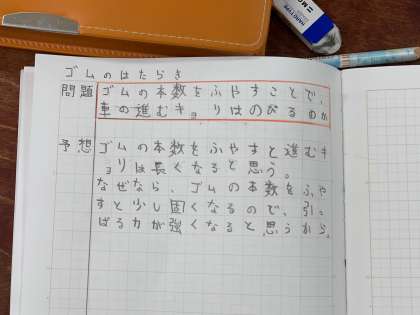 ゴムのはたらき
問題 ゴムの本数をふやすことで、
車の進むキョリはのびるのか
予想 ゴムの本数をふやすと進むキ
ョリは長くなると思う。
なぜなら、ゴムの本数をふや
すと少し固くなるので、引っ
ぱる力が強くなると思うから。
MONO